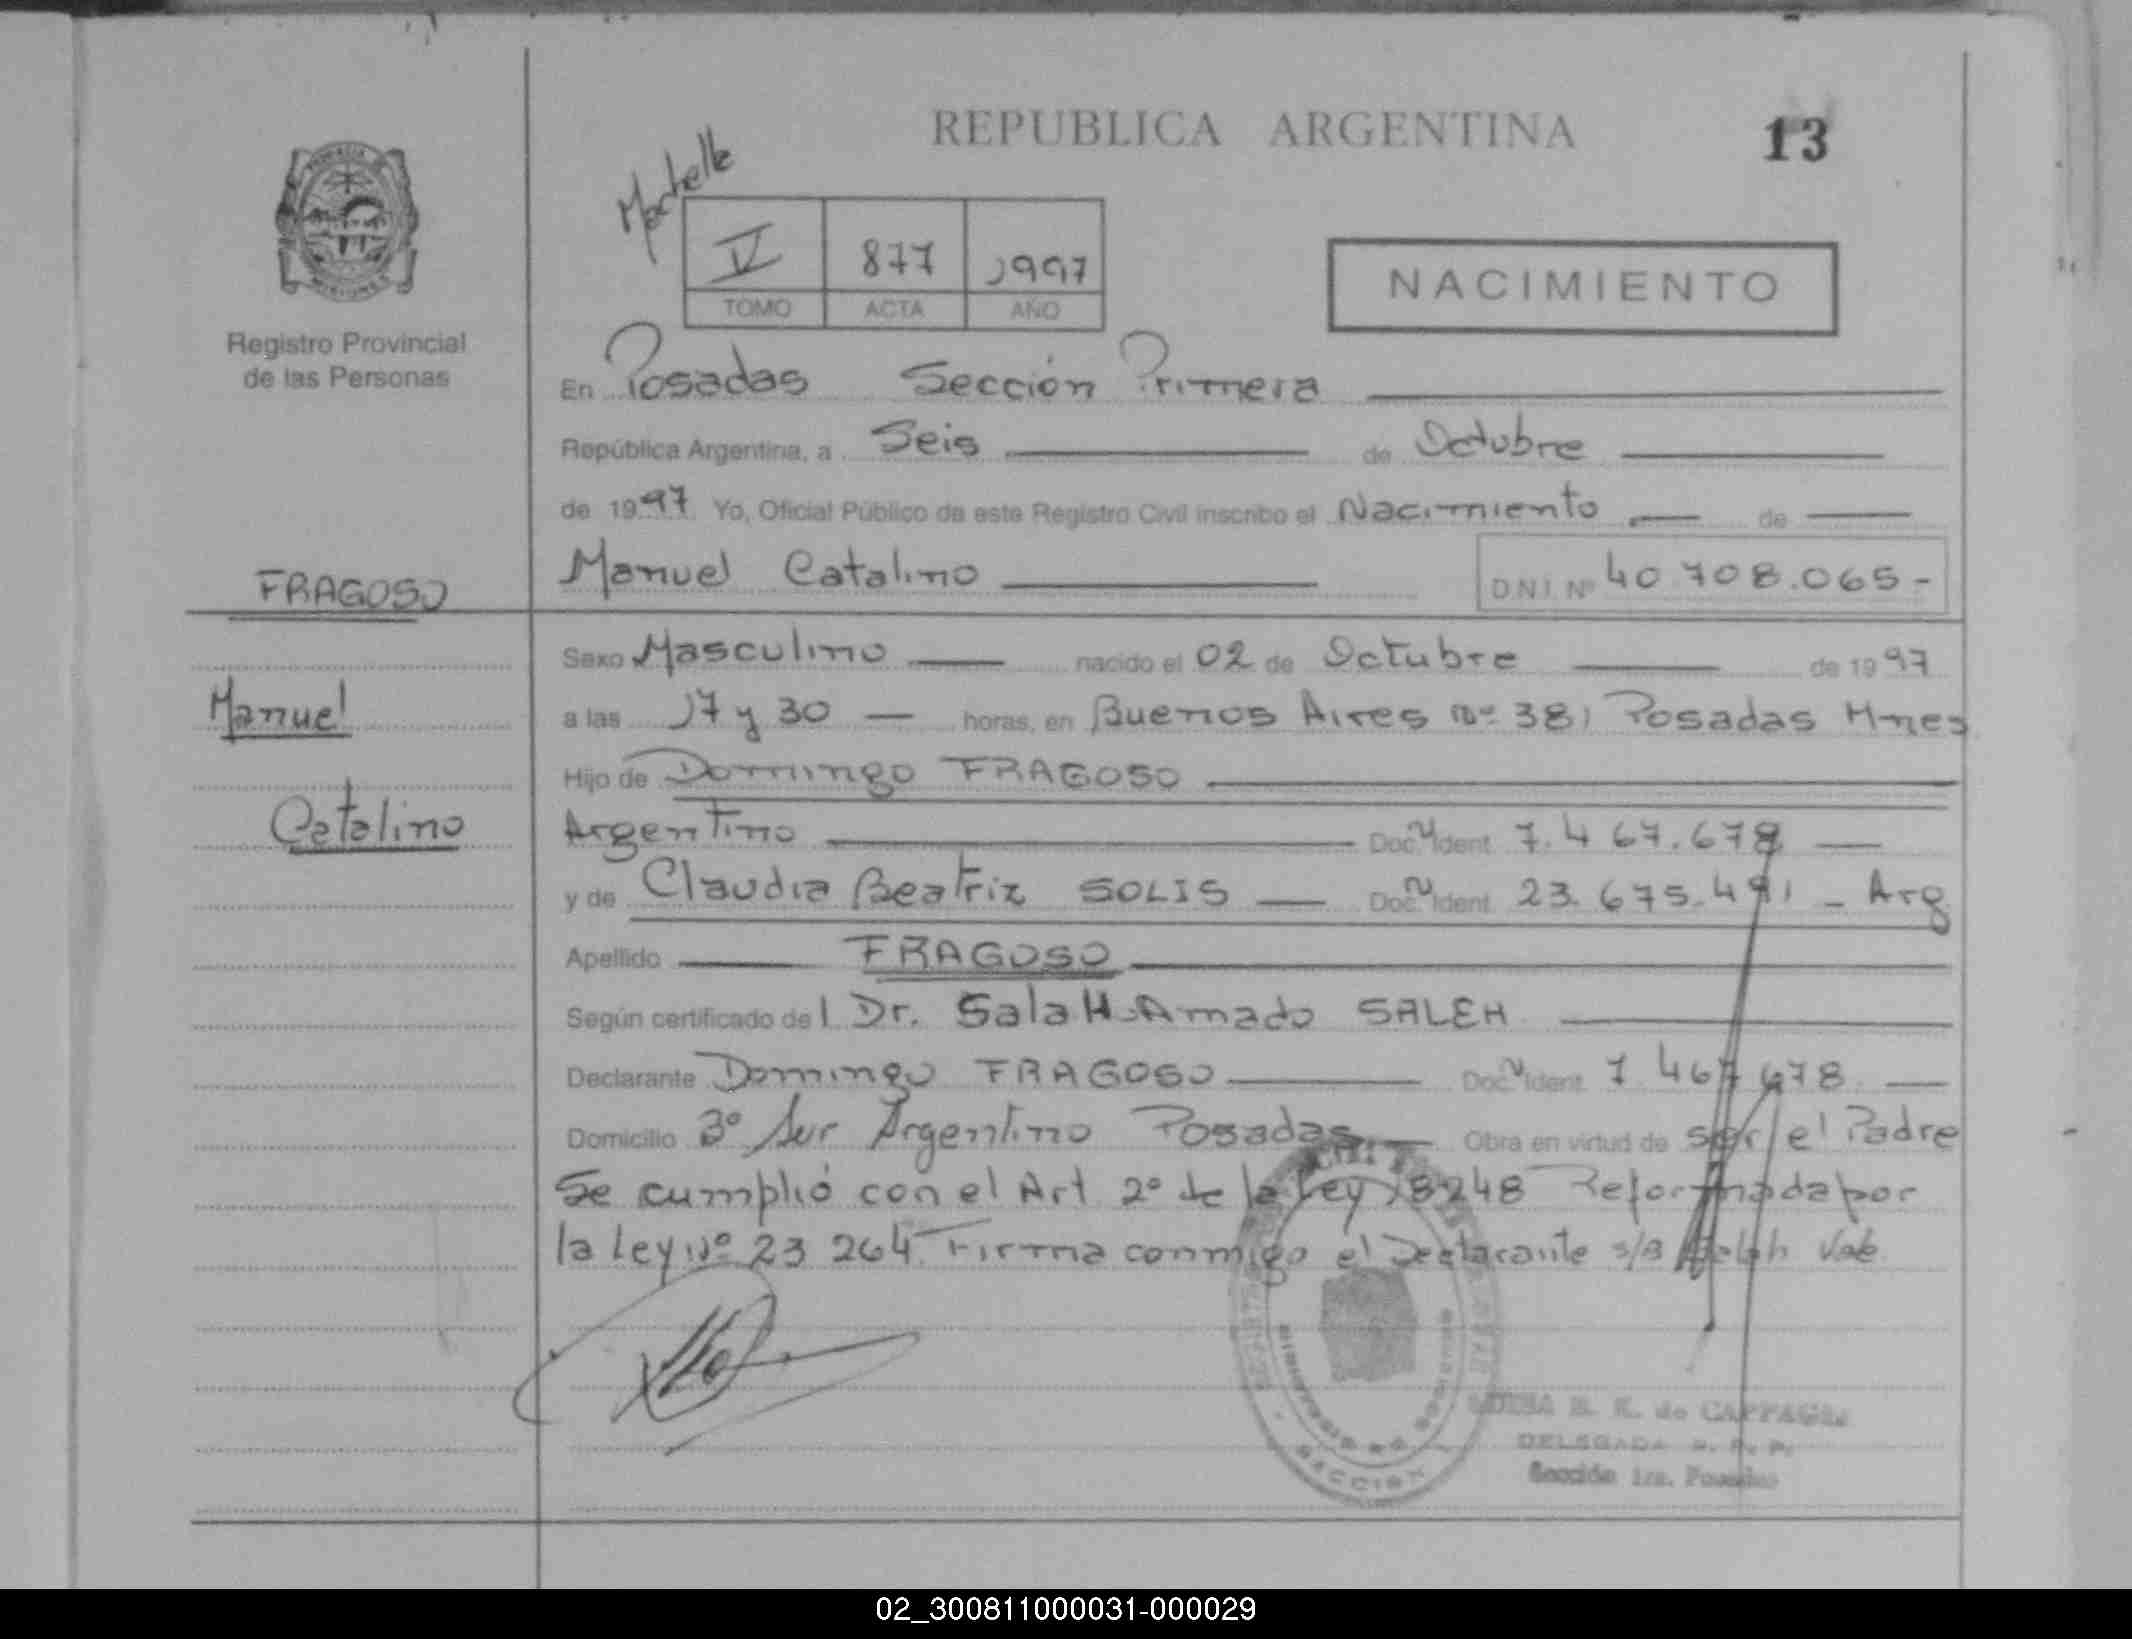 REPUBLICA ARGENTINA
13
IV 877 1997
TOMO ACTA AÑO
NACIMIENTO
MISIONES
Registro Provincial
de las Personas
En Posadas Sección Primera
República Argentina, a Seis de Octubre
de 1997 Yo, Oficial Público de este Registro Civil inscribo el Nacimiento de
FRAGOSO
Manuel Catalino
D.N.I. Nº 40 708.065-
Sexo Masculino nacido el 02 de Octubre de 1997
Manuel
a las 17 y 30 horas, en Buenos Aires Nº 38, Posadas Mnes
Hijo de Domingo FRAGOSO
Catalino
Argentino Doc. Ident 7.467.678
y de Claudia Beatriz SOLIS Doc. Ident 23.675.491 - Arg
Apellido FRAGOSO
Según certificado del Dr. Salah Amado SALEH
Declarante Domingo FRAGOSO Doc. Ident 7 467 678
Domicilio 3º Sur Argentino Posadas Obra en virtud de ser el Padre
Se cumplió con el Art 2º de la Ley 18248 Reformada por
la Ley Nº 23 264 Firma conmigo el Declarante s/R Vale
LUISA de
DELEGADA R. P. P.
Sección 1ra. Posadas
SECCION
02_300811000031-000029